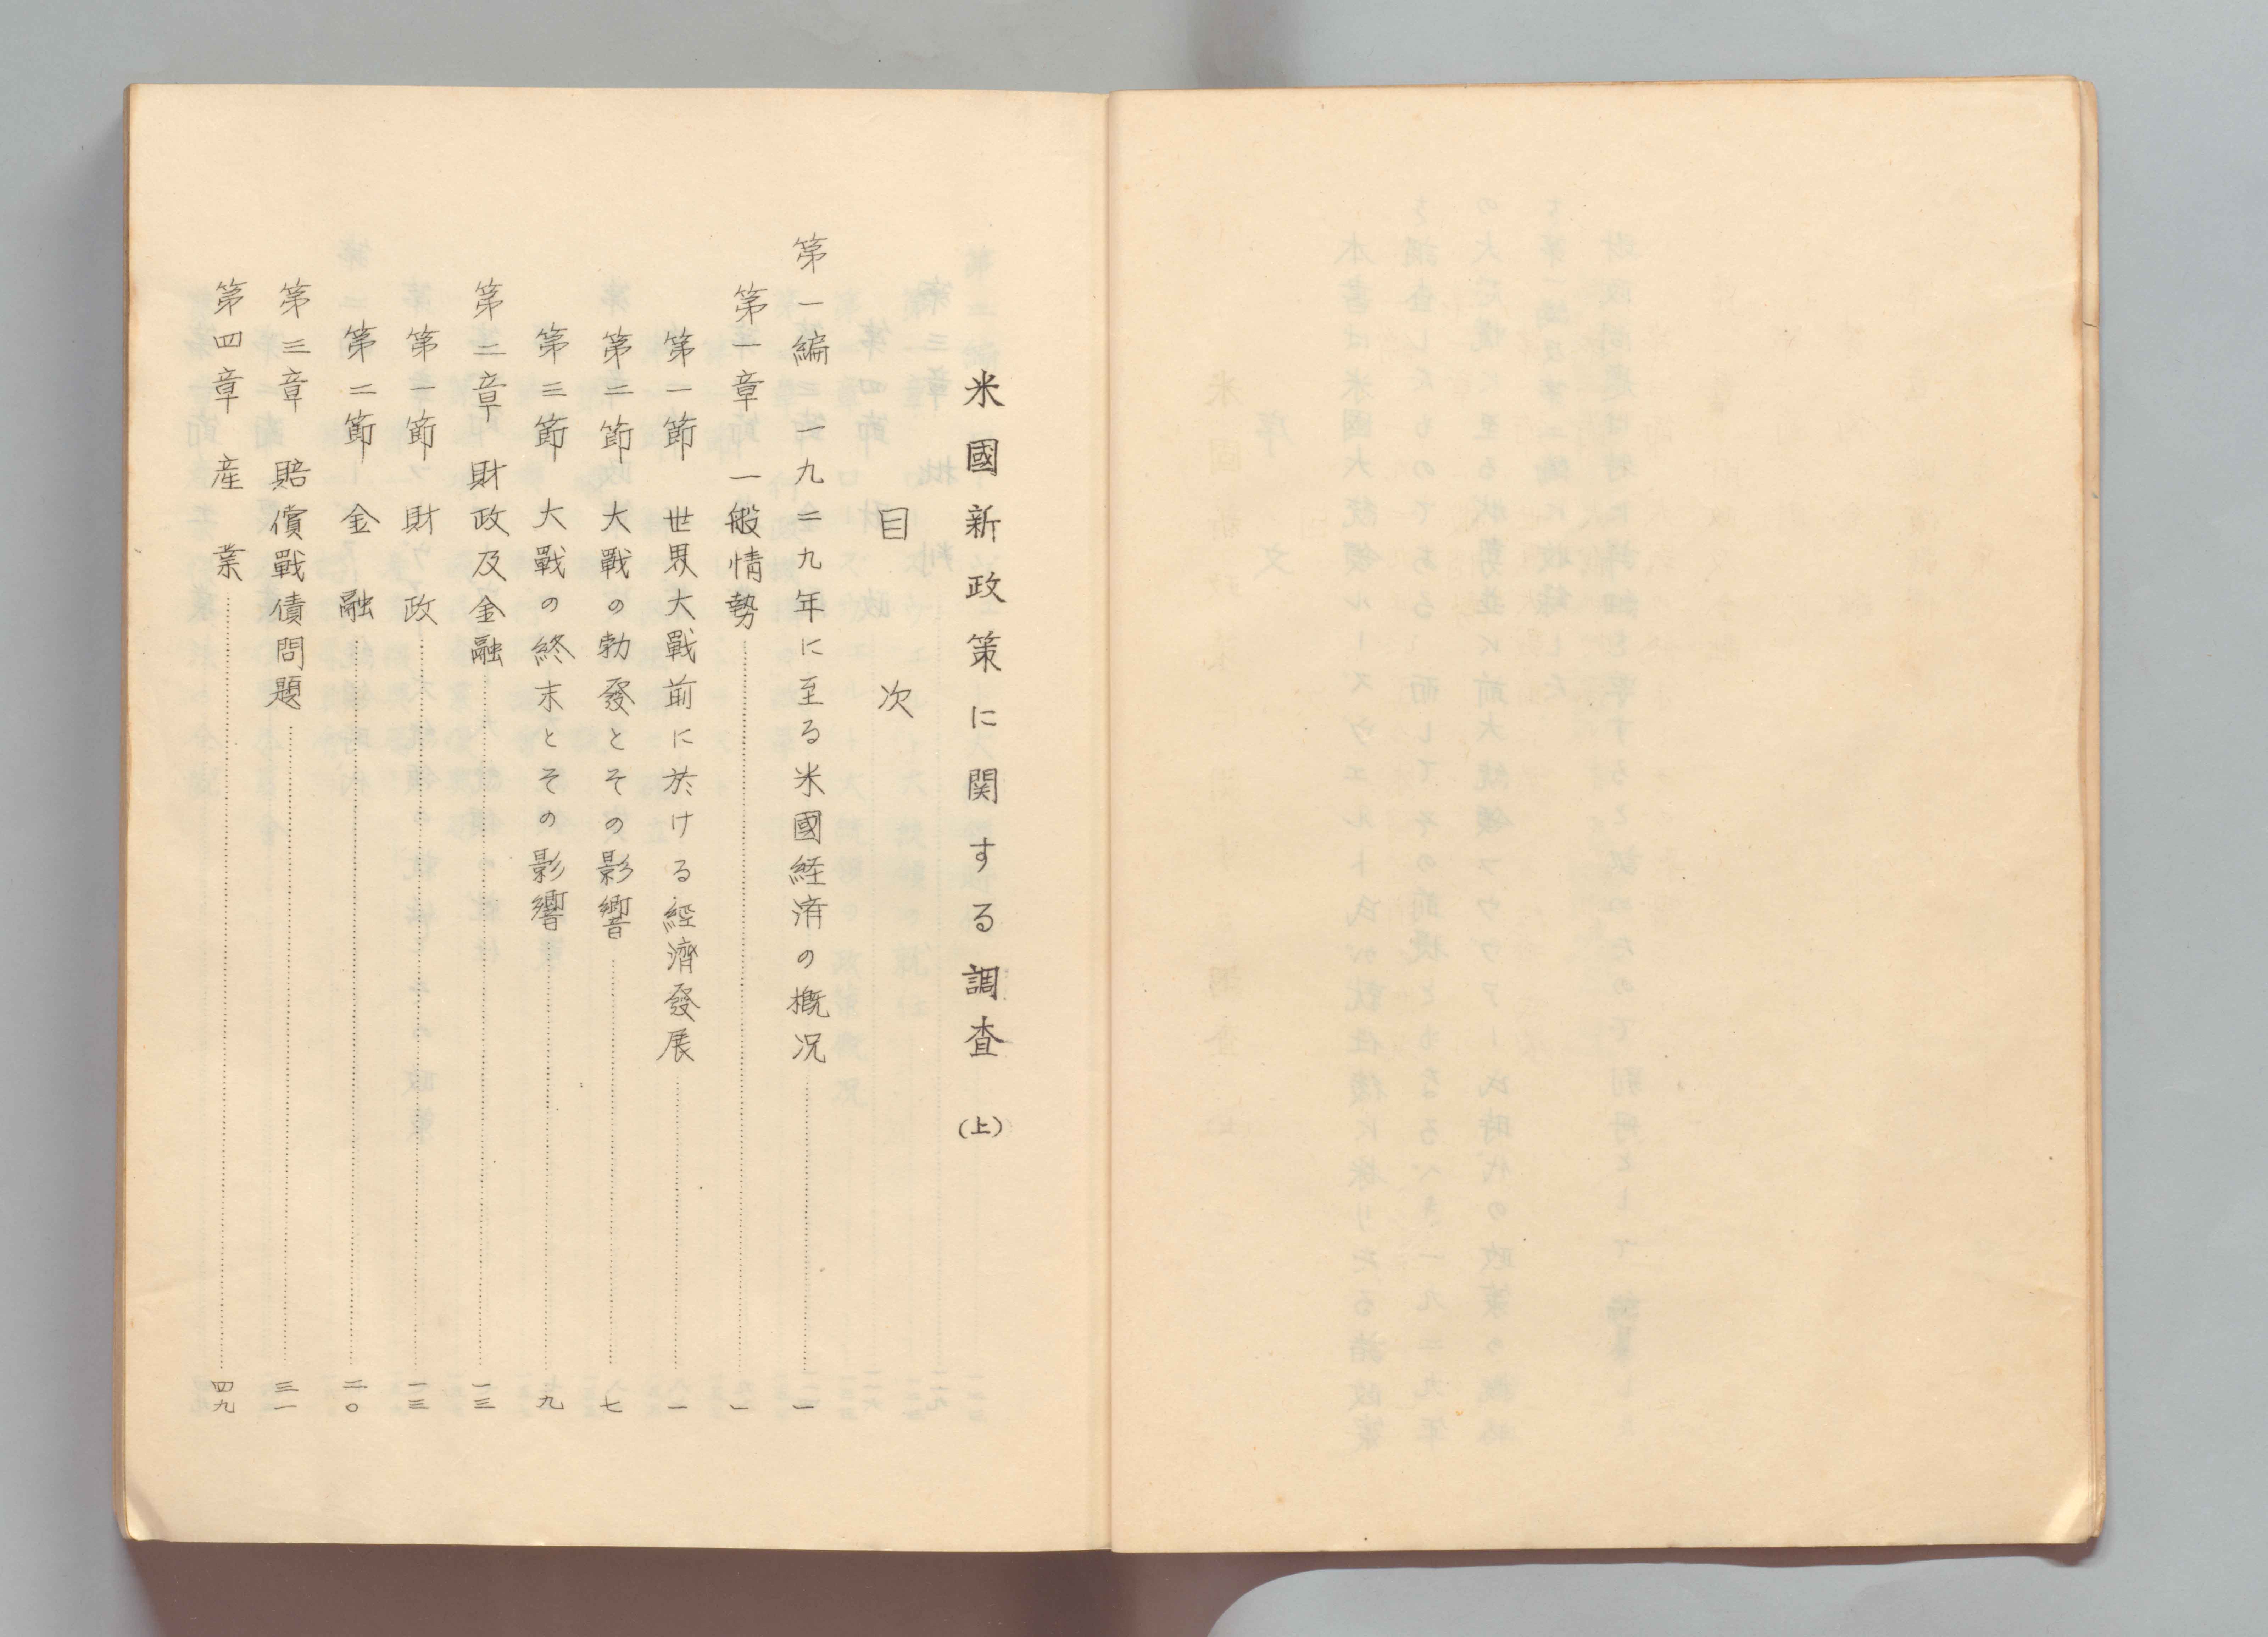 米國新政策に関する調査（上）
目次
第一編　一九二九年に至る米國経済の概况……一
第一章　一般情勢……一
第一節　世界大戰前に於ける經濟發展……一
第二節　大戰の勃發とその影響……七
第三節　大戰の終末とその影響……九
第二章　財政及金融……一三
第一節　財政……一三
第二節　金融……二〇
第三章　賠償戰債問題……三一
第四章　産業……四九